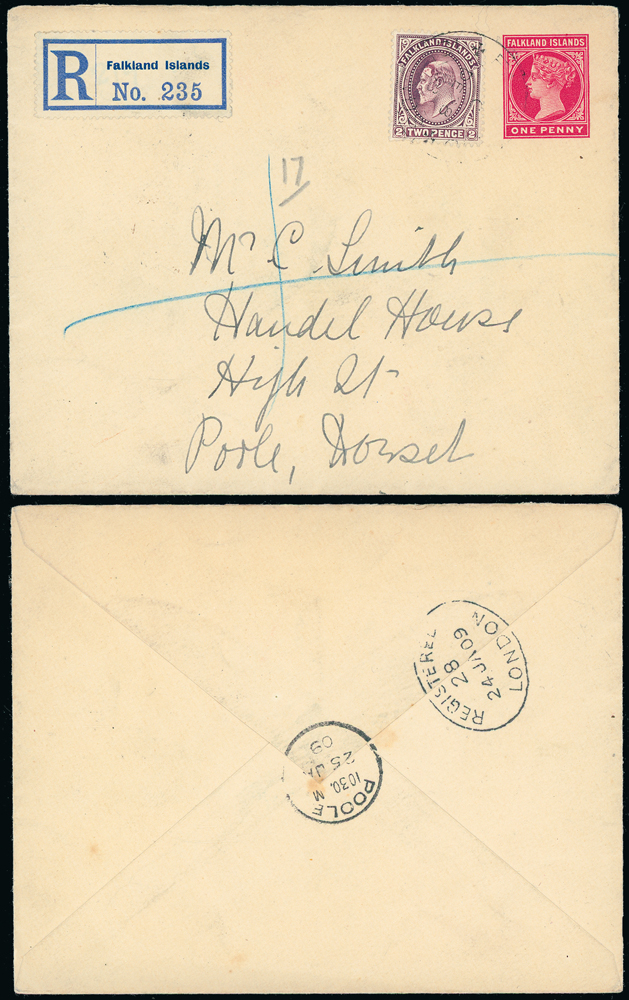 R
Falkland Islands
No. 235
FALKLAND ISLANDS
2 TWO PENCE 2
FALKLAND ISLANDS
ONE PENNY
17
Mr C. Smith
Handel House
High St
Poole, Dorset
REGISTERED
28
24 JA 09
LONDON
POOLE
10 30. M
25 JA
09